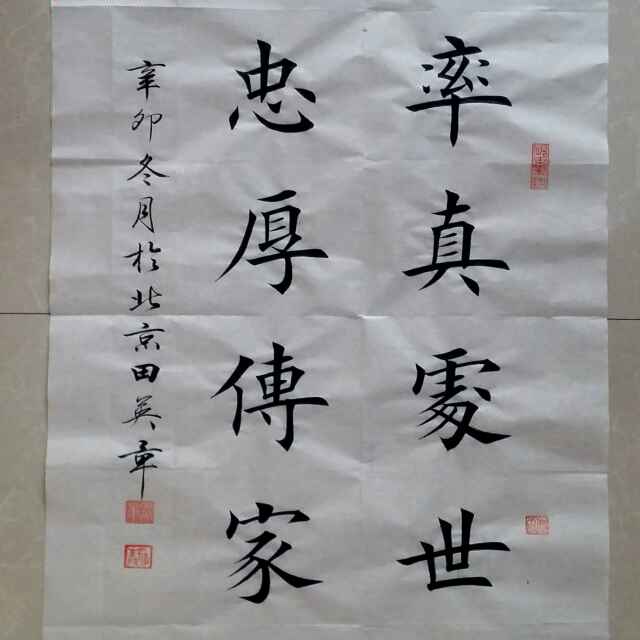 率真處世
忠厚傳家
辛卯冬月於北京田英章